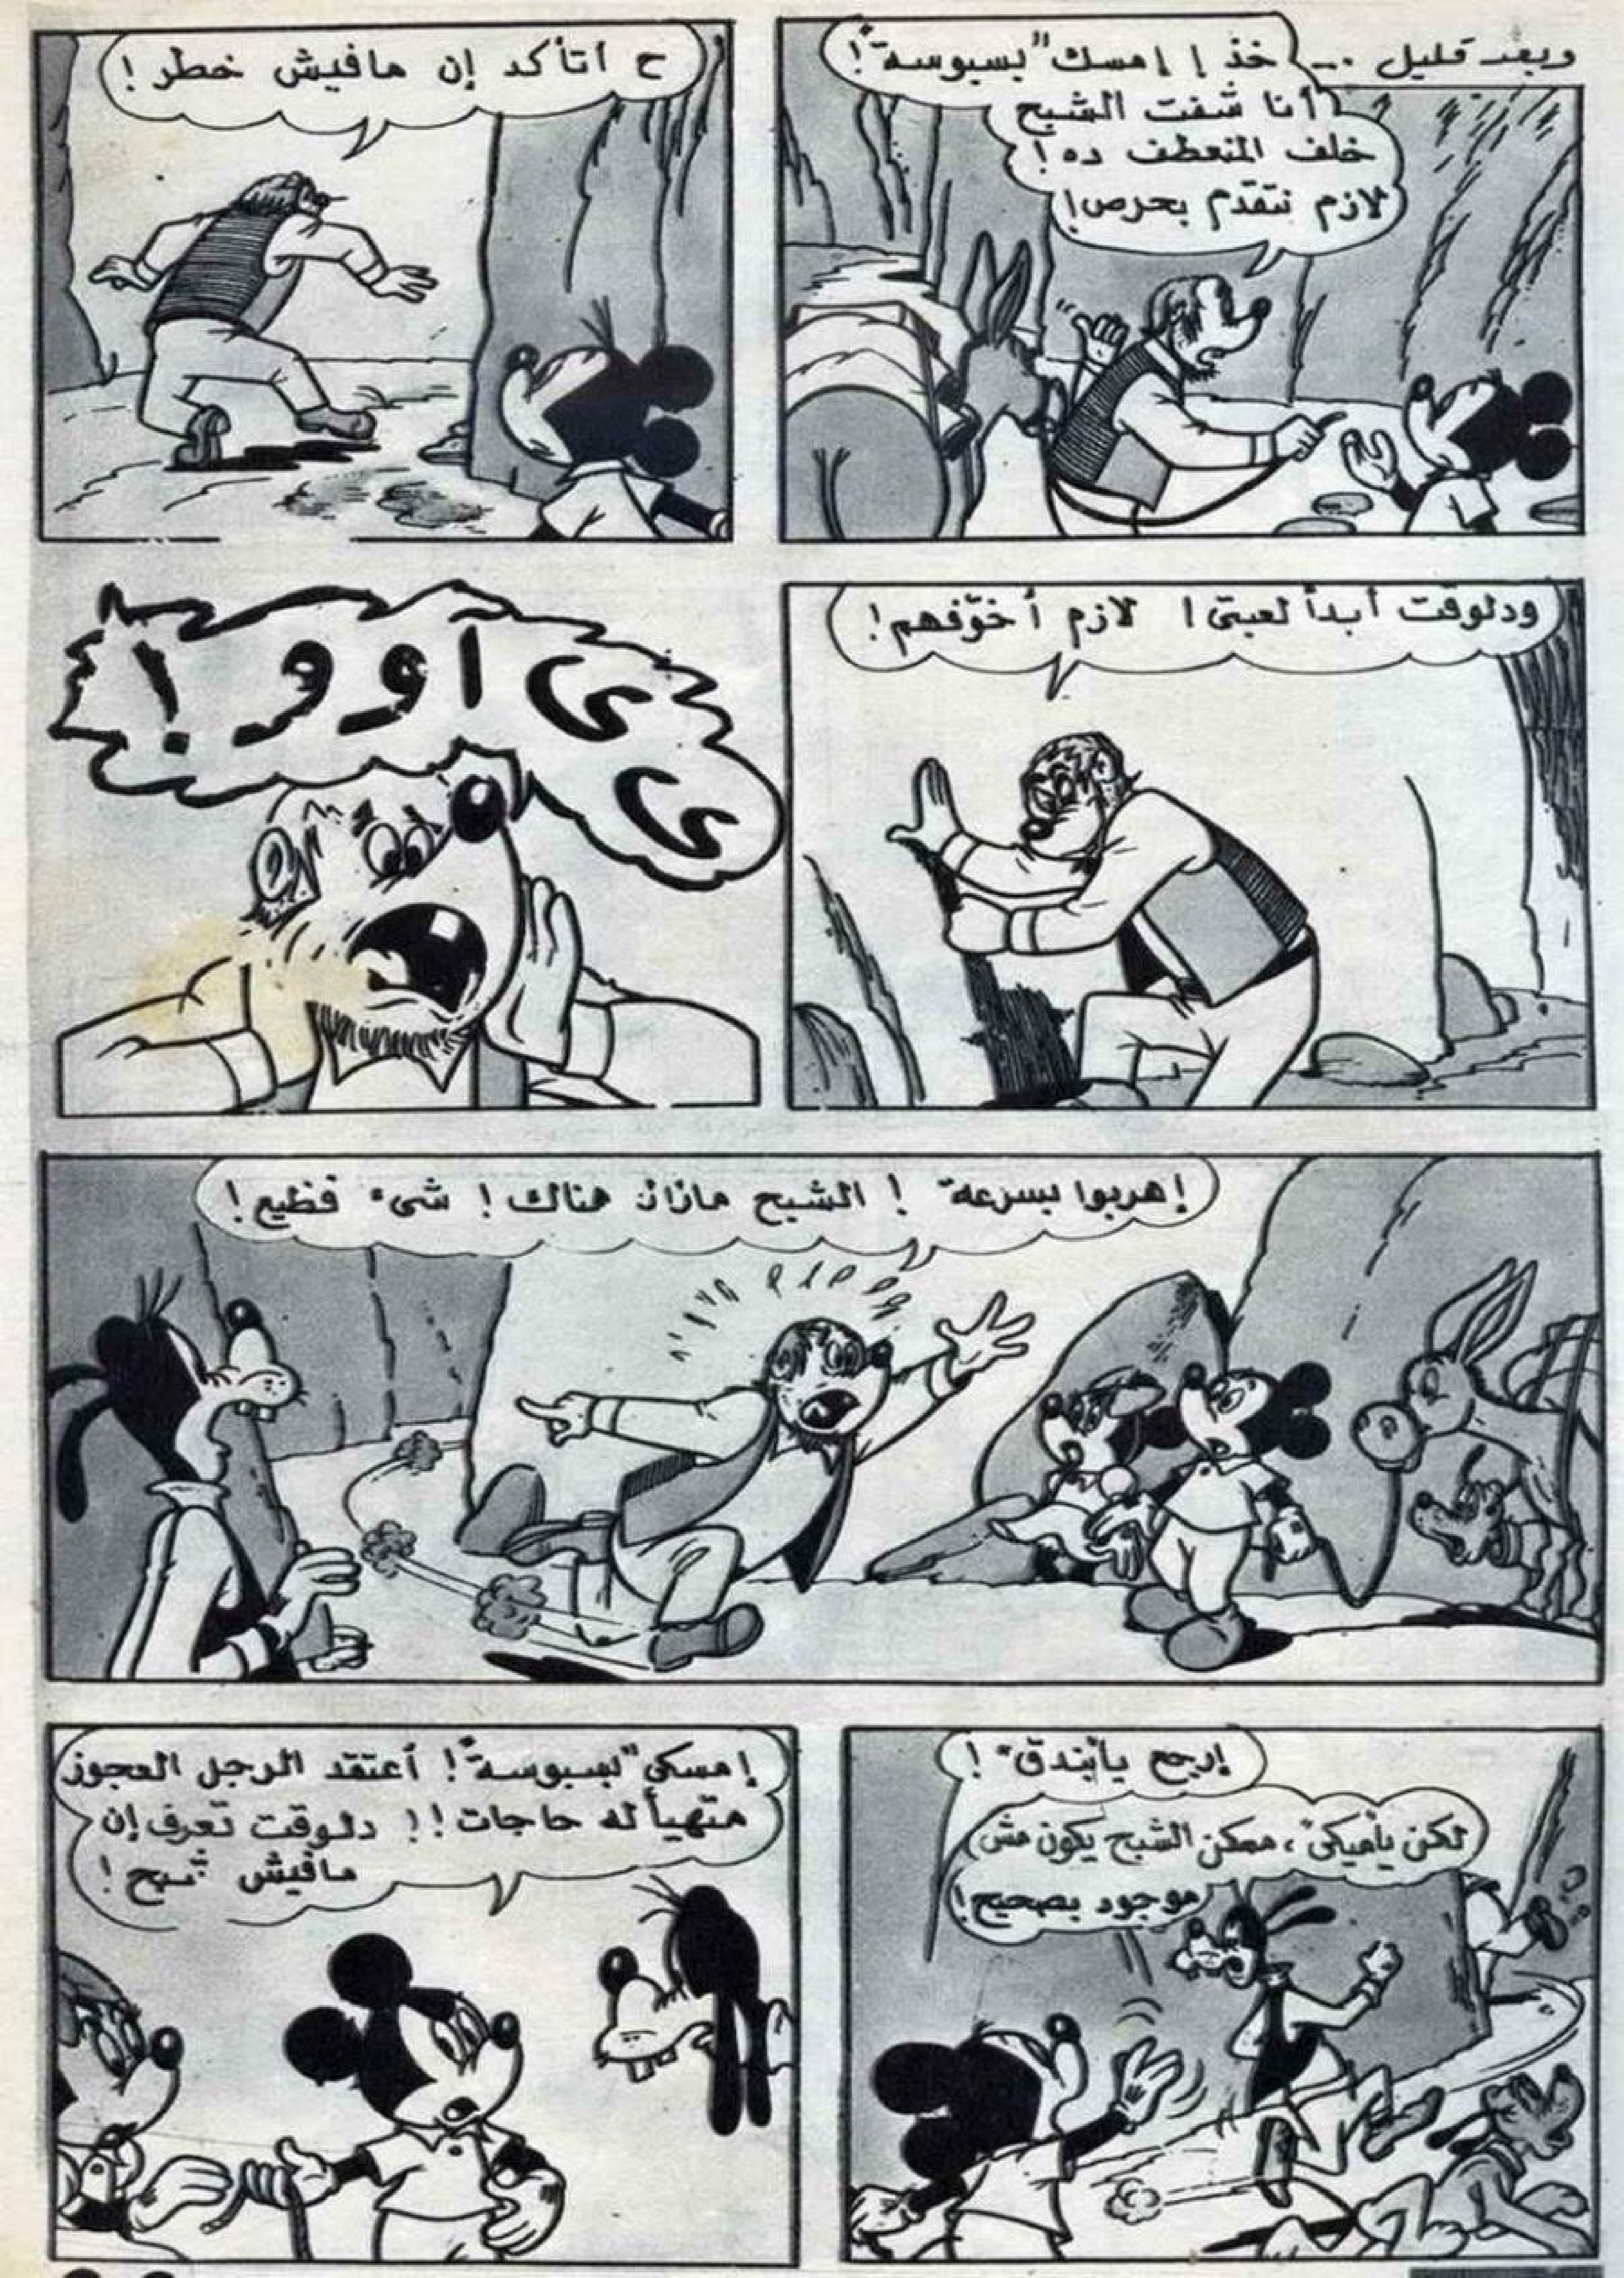 وبعد قليل ...
خذ ! إمسك "بسبوسة" !
أنا شفت الشبح
خلف المنعطف ده !
لازم نتقدم بحرص !
ح أتأكد إن مافيش خطر !
ودلوقت أبدأ لعبتى ! لازم أخوّفهم !
ى
ى آوو !
إهربوا بسرعة ! الشبح مازال هناك ! شىء فظيع !
إرجع يا"بندق" !
لكن يا"ميكى" ، ممكن الشبح يكون مش
موجود بصحيح !
إمسكى "بسبوسة" ! أعتقد الرجل العجوز
متهيأ له حاجات !! دلوقت نعرف إن
مافيش شبح !